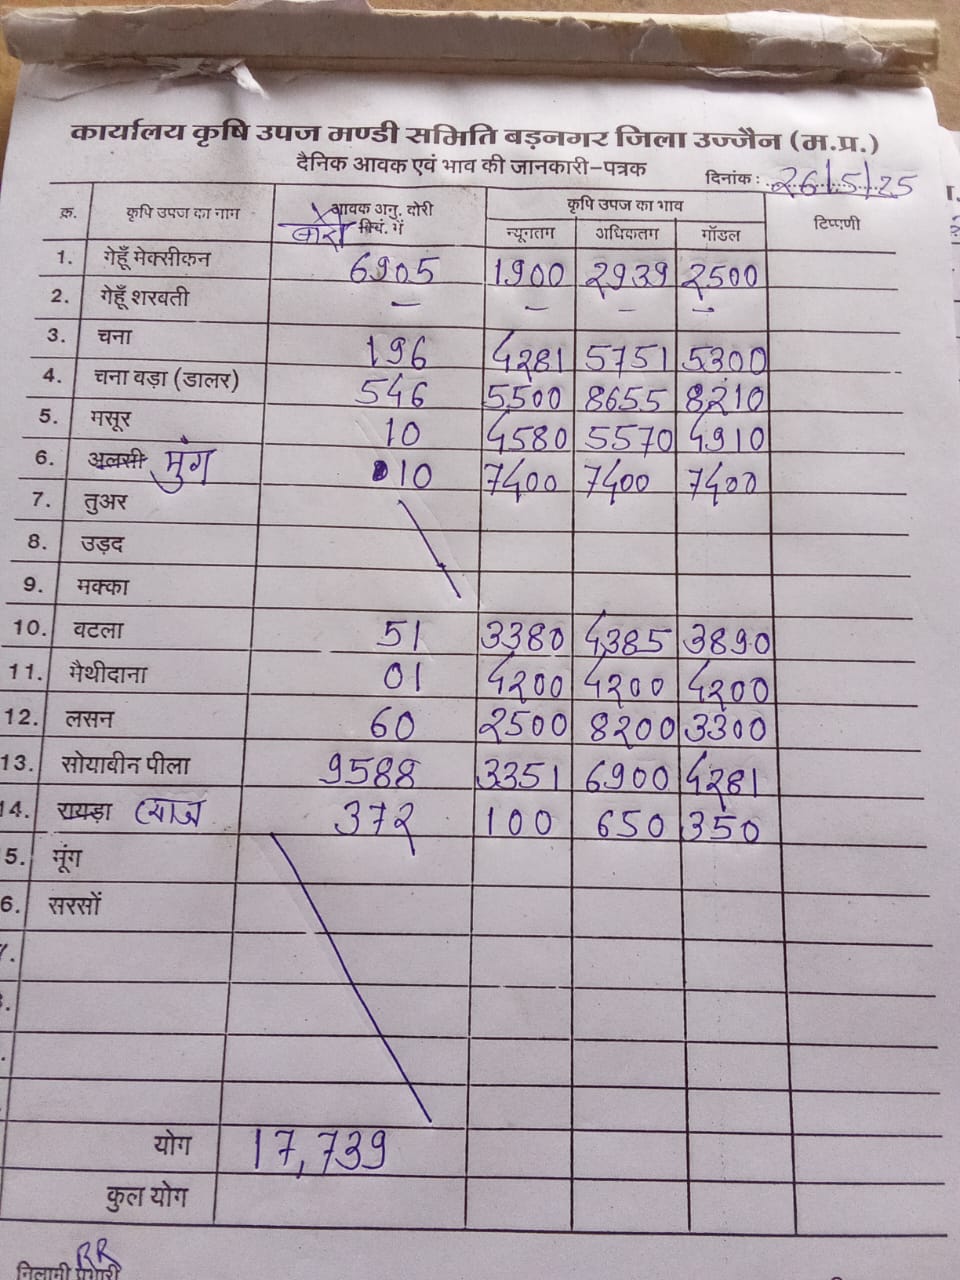 कार्यालय कृषि उपज मण्डी समिति बड़नगर जिला उज्जैन (म.प्र.)
दैनिक आवक एवं भाव की जानकारी-पत्रक
दिनांक: 26/5/25
क्र. कृषि उपज का नाम आवक अनु. बोरी क्विं. में कृषि उपज का भाव टिप्पणी
बोरी न्यूनतम अधिकतम मॉडल
1. गेहूँ मेक्सीकन 6905 1900 2939 2500
2. गेहूँ शरबती – – – –
3. चना 196 4281 5751 5300
4. चना बड़ा (डालर) 546 5500 8655 8210
5. मसूर 10 4580 5570 4910
6. अलसी मुंग 10 7400 7400 7400
7. तुअर
8. उड़द
9. मक्का
10. बटला 51 3380 4385 3890
11. मैथीदाना 01 4200 4200 4200
12. लसन 60 2500 8200 3300
13. सोयाबीन पीला 9588 3351 6900 4281
14. रायड़ा प्याज 372 100 650 350
5. मूंग
6. सरसों
7.
योग 17,739
कुल योग
RR
निलामी प्रभारी